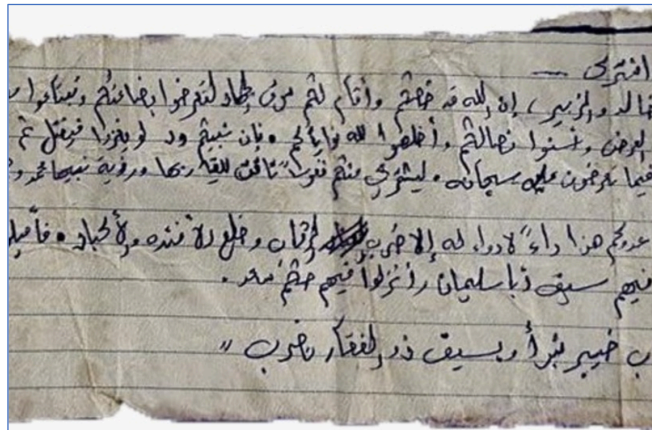 خالد والزبير، إن الله قد خصكم وأقام لكم سوق الجهاد لتعرضوا بضاعتكم
العرض وتحسنوا نضالكم وأخلصوا لله نواياكم. فإن نبيكم ود لو يغزوا فيقتل ثم
فيما تعرضون عليه سبحانه. ليشتري منكم نفوساً تاقت للقاء ربها ورؤية نبيها محمد
عدوكم هذا داء لا دواء له إلا ضرب الرقاب وخلع الأفئدة والأكباد. فأميلوا
فيهم سيوف أبا سليمان وأنزلوا فيهم حكم سعد.
خيبر نبرأ وبسيف ذو الفقار نضرب"